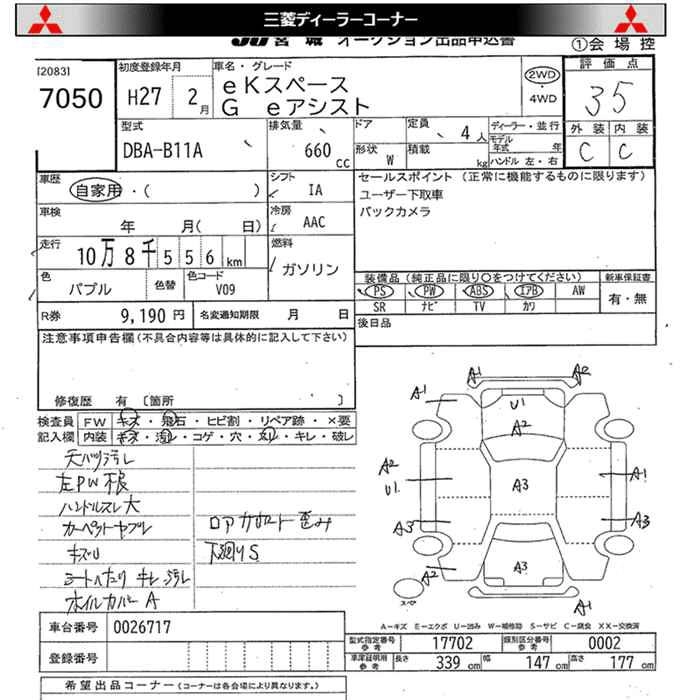 三菱ディーラーコーナー
JU宮城 オークション出品申込書
①会場控
[2083]
7050
初度登録年月
H27 2月
車名・グレード
eKスペース
G eアシスト
2WD
・4WD
評価点
35
型式
DBA-B11A
排気量
660 cc
ドア
形状 W
定員 4人
積載 kg
ディーラー・並行
モデル年式 年
ハンドル 左・右
外装 内装
C C
車歴
自家用・( )
シフト
IA
セールスポイント (正常に機能するものに限ります)
ユーザー下取車
バックカメラ
車検
年 月( 日)
冷房
AAC
走行
10万8千556km
燃料
ガソリン
色
パプル
色替
色コード
V09
装備品(純正品に限り○をつけてください)
新車保証書
PS PW ABS エアB AW
SR ナビ TV カワ
有・無
R券 9,190円
名変通知期限 月 日
後日品
注意事項申告欄(不具合内容等は具体的に記入して下さい)
修復歴 有 [箇所 ]
検査員記入欄
FW キズ・飛石・ヒビ割・リペア跡・×要
内装 キズ・汚レ・コゲ・穴・スレ・キレ・破レ
天バリ汚レ
左PW不良
ハンドルスレ大
カーペットヤブレ
ロアサポート歪み
キズU
下廻りS
シートヘタリ キレ 汚レ
ホイルカバーA
A1 A2
A1 U1
A2
A2
U1 A3 A1
A3 A3
A2 A3
A1
スペア
A-キズ E-エクボ U-凹み W-補修跡 S-サビ C-腐食 XX-交換済
車台番号 0026717
登録番号
型式指定番号参考 17702
類別区分番号参考 0002
車庫証明用参考 長さ 339cm 幅 147cm 高さ 177cm
希望出品コーナー(コーナーは各会場により異なります。)